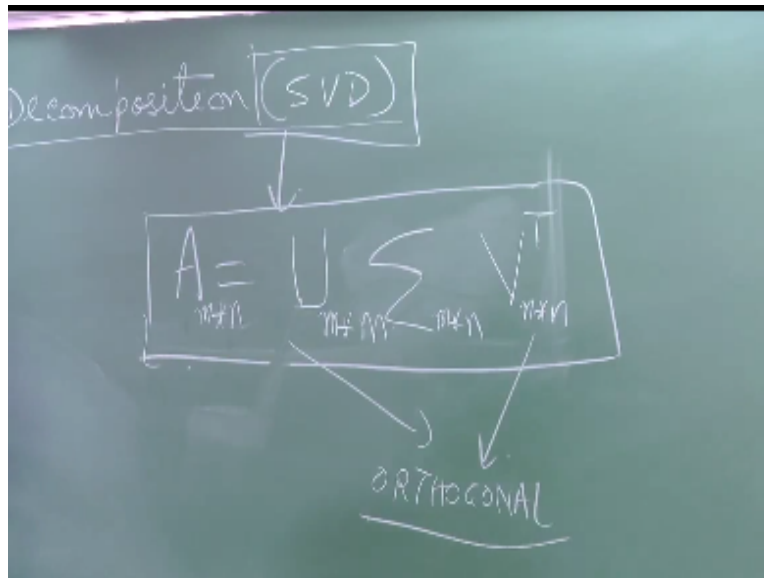 Decomposition (SVD)
A m*n = U m*m Σ m*n V^T n*n
ORTHOGONAL